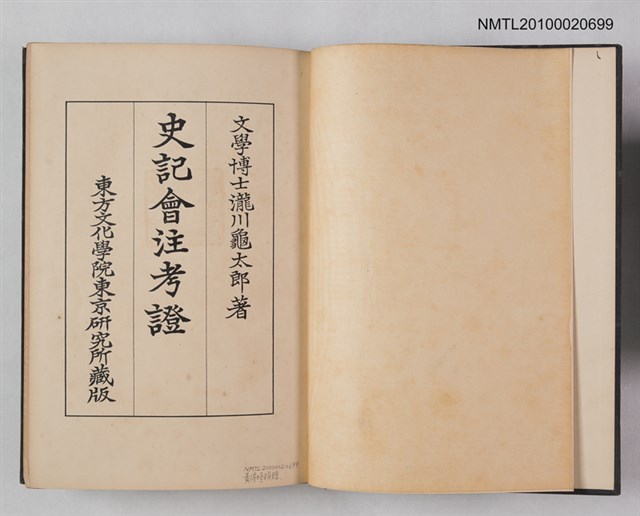 NMTL20100020699
文學博士瀧川龜太郎著
史記會注考證
東方文化學院東京研究所藏版
NMTL20100020699